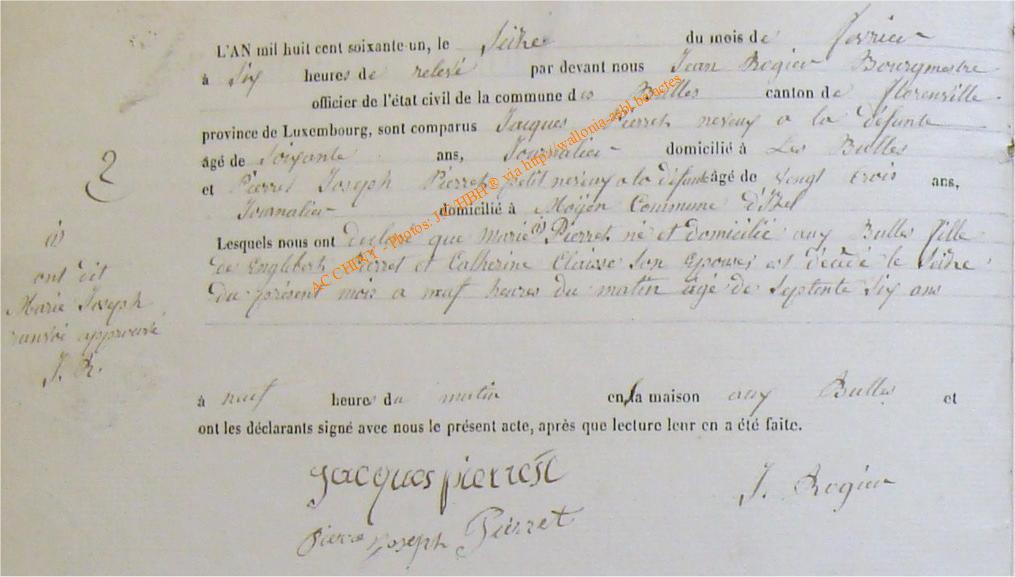 L'AN mil huit cent soixante-un, le Seike du mois de fevrier
à Six heures de relevé par devant nous Jean Rogier Bourgmestre
officier de l'état civil de la commune des Bulles canton de florenville
province de Luxembourg, sont comparus Jacques Pierret neveux a la défunte
âgé de Soixante ans, Journalier domicilié à Les Bulles
et Pierret Joseph Pierret petit neveux a la défunte âgé de vengt trois ans,
Journalier domicilié à Moyen Commune d'Izel
Lesquels nous ont déclaré que Marie (1) Pierret né et domicilié aux Bulles fille
de Englebert Pierret et Catherine Claisse Son Epouse, est décéde le Seike
du présent mois a neuf heures du matin âgé de Septente Six ans
2
(1)
ont dit
Marie Joseph
renvoi approuvé
J. R.
à neuf heures du matin en la maison aux Bulles et
ont les déclarants signé avec nous le présent acte, après que lecture leur en a été faite.
jacques pierret
J. Rogier
pierre joseph Pierret
AC CHINY - Photos: J-C HBH® via http://wallonia-asbl.be/actes.